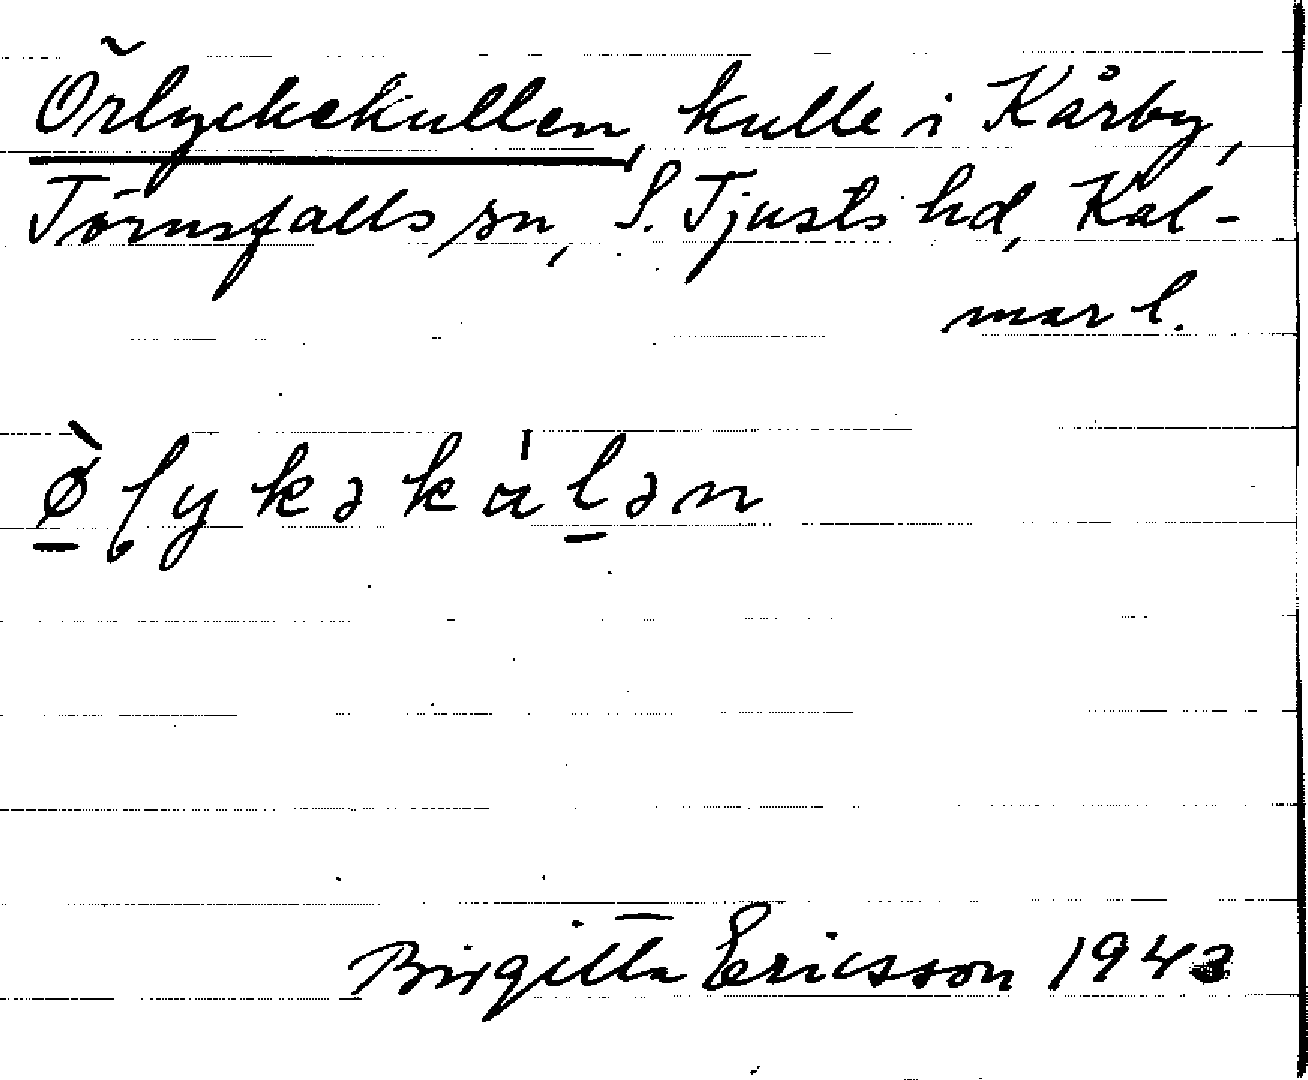 Örlyckekullen, kulle i Kårby,
Törnsfalls sn, S. Tjusts hd, Kal-
mar l.
ø̱̀ɭykəkúḻən
Birgitta Ericsson 1943